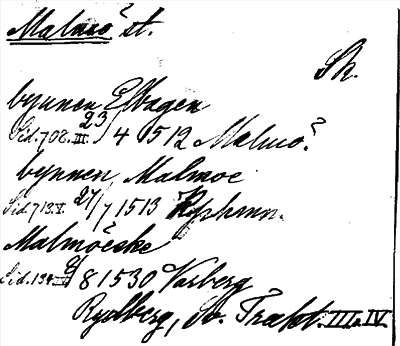 Malmö st.
Sk.
bynnen Elbogen
Sid. 708. III. 23/4 1512 Malmö.
bynnen Malmoe
Sid. 713. V. 27/7 1513 Kphavn.
Malmöeske
Sid. 134. 9/8 1530 Varberg
Rydberg, Sv. Trakt. III o. IV.